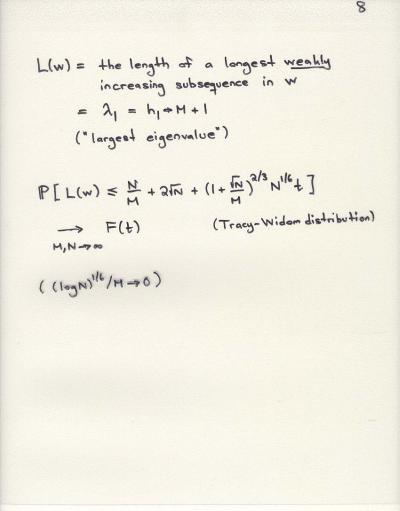 8
L(w) = the length of a longest weakly
increasing subsequence in w
= λ₁ = h₁ - M + 1
("largest eigenvalue")
P[ L(w) ≤ N/M + 2√N + (1 + √N/M)^{2/3} N^{1/6} t ]
→ F(t) (Tracy-Widom distribution)
M,N→∞
( (log N)^{1/6}/M → 0 )